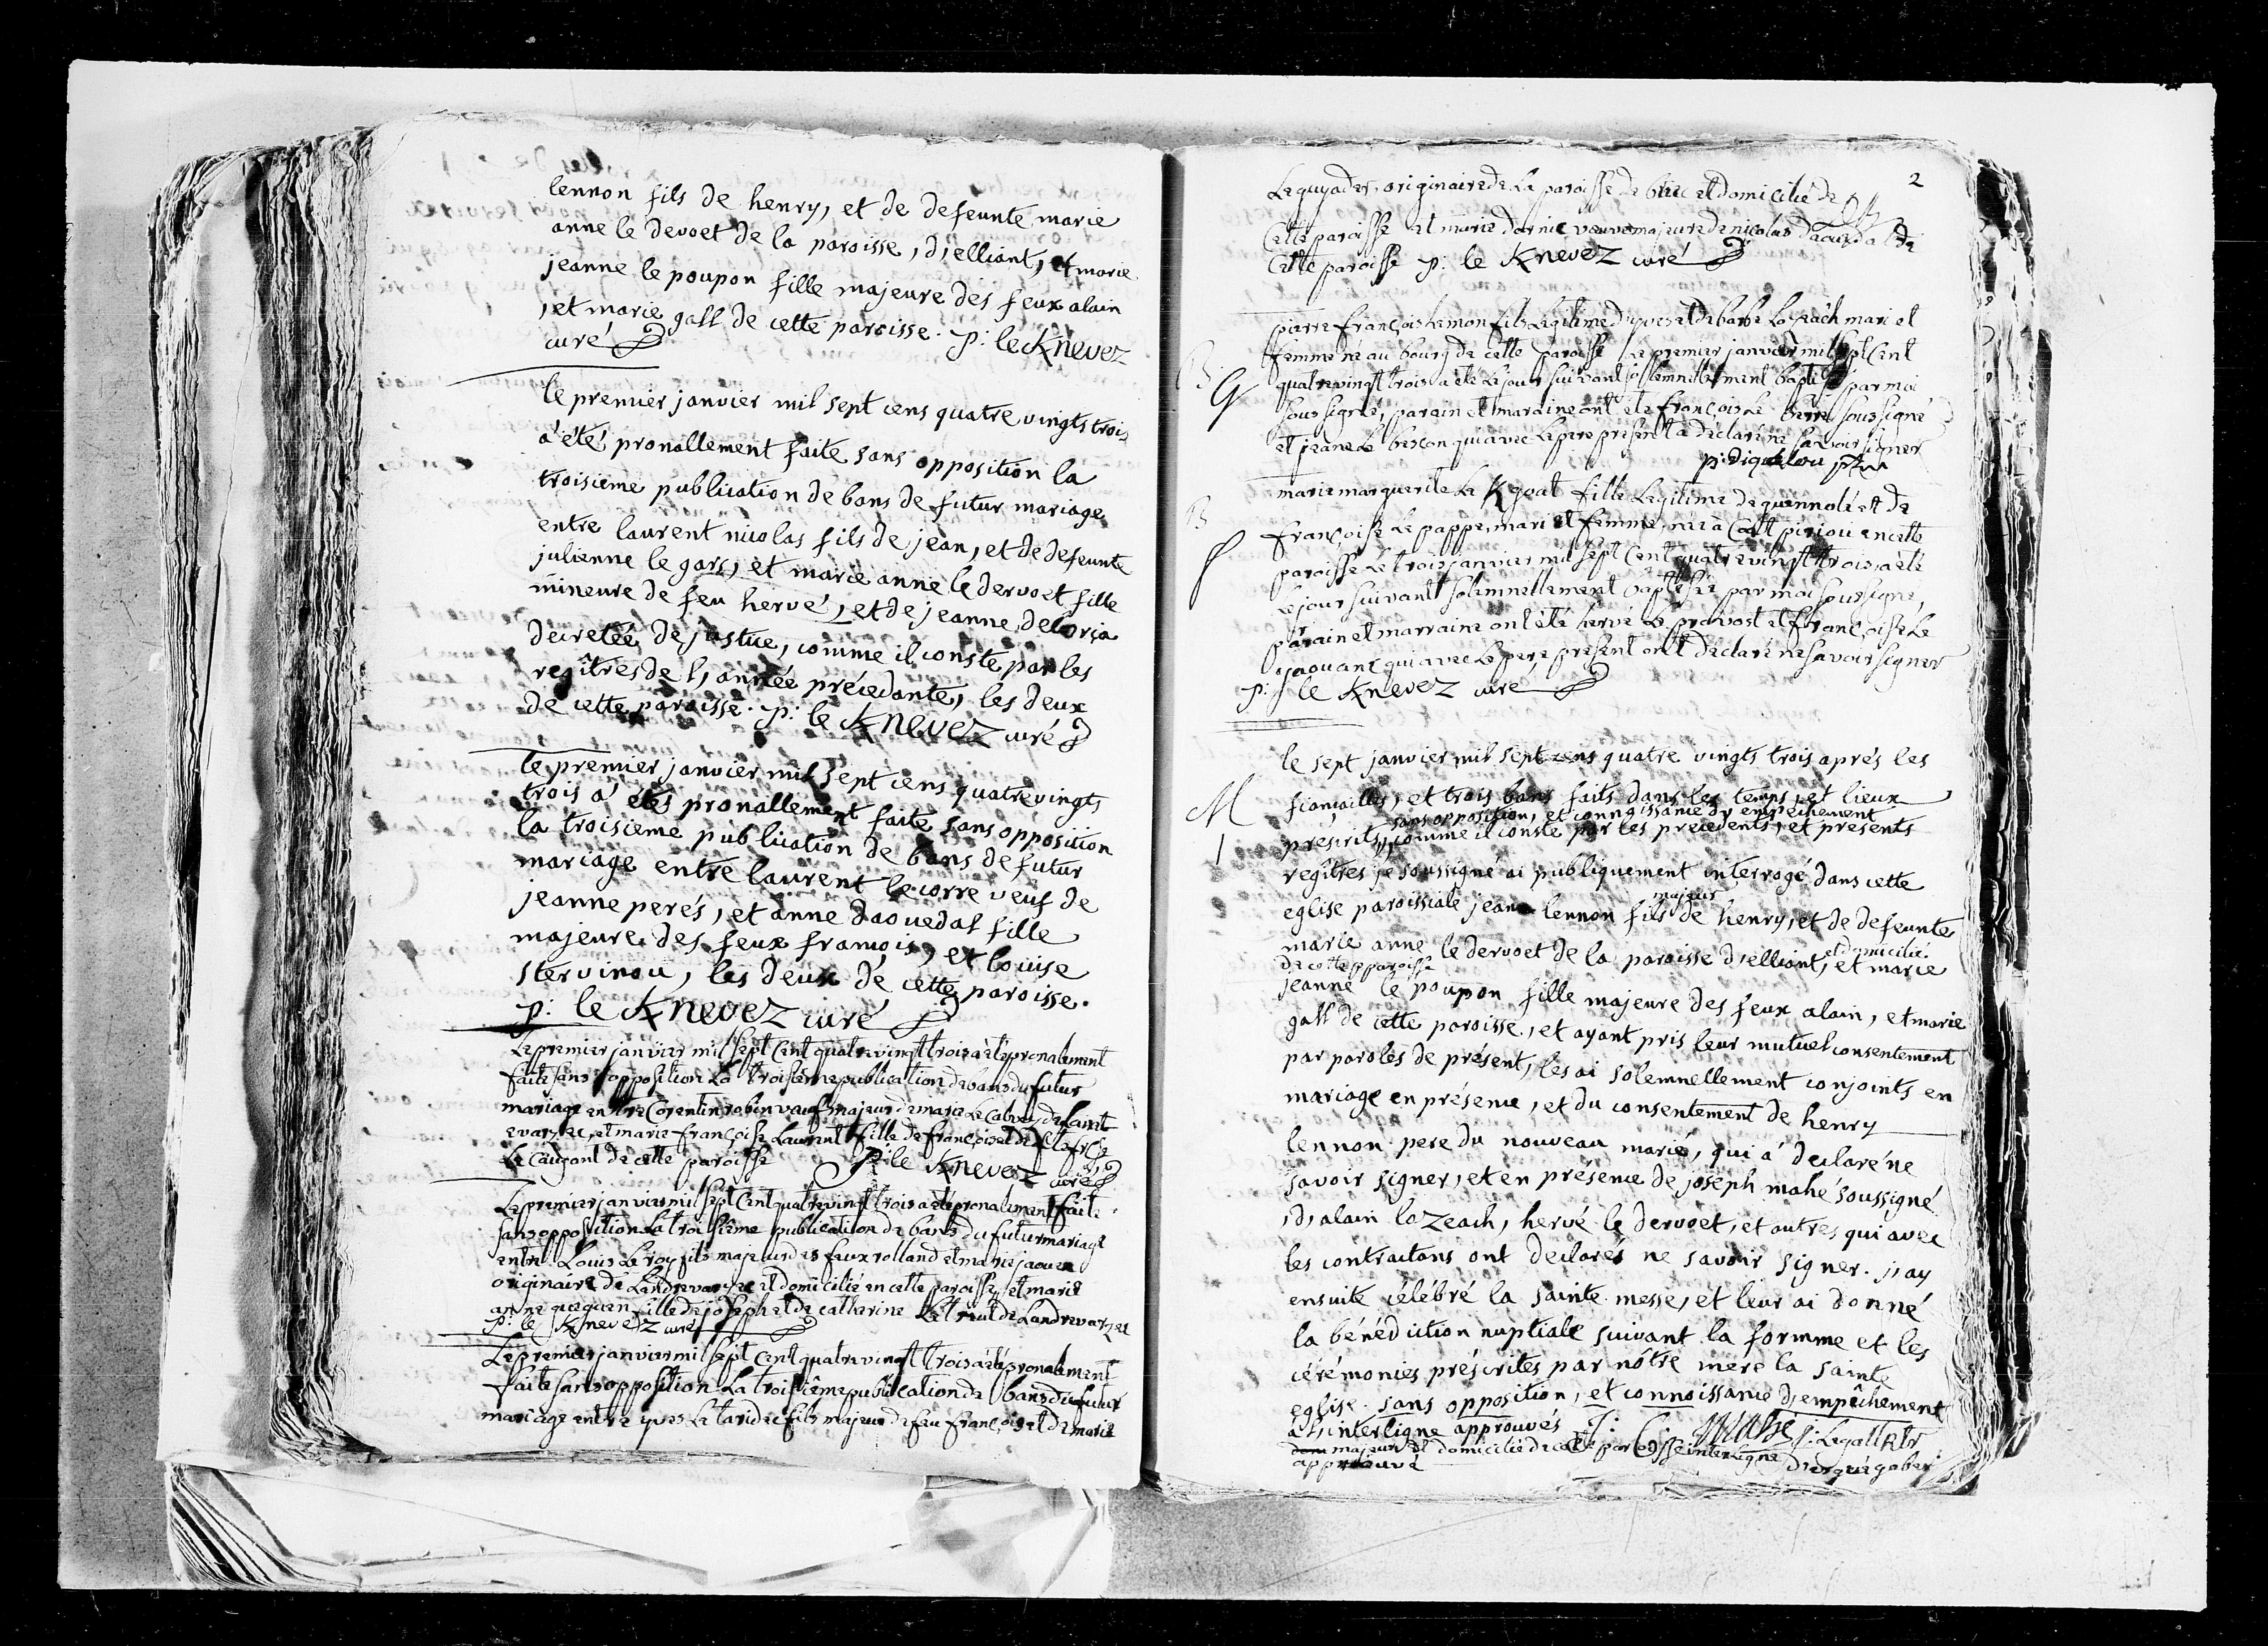 lennon fils de henry, et de defeunte marie
anne le devoet de la paroisse, d, elliant, et marie
jeanne le poupon fille majeure des feux alain
, et marie gall de cette paroisse. p: le Knevez
curé
le premier janvier mil sept cens quatre vingts trois
a été pronallement faite sans opposition la
troisieme publication de bans de futur mariage
entre laurent nicolas fils de jean, et de defeunte
julienne le gars, et marie anne le dervoet fille
mineure de feu hervé, et de jeanne
decretée de justice, comme il conste par les
regîtres de l, année précedante, les deux
de cette paroisse. p: le Knevez curé
le premier janvier mil sept cens quatre vingts
trois a étés pronallement faite sans opposition
la troisieme publication de bans de futur
mariage entre laurent le corre veuf de
jeanne perés, et anne daouedal fille
majeure des feux françois, et louise
stervinou, les deux de cette paroisse.
p: le Knevez curé
Le premier janvier mil sept Cent quatrevingt trois a eté pronalement
faite sans opposition La troisième publication de bans du futur
mariage entre Corentin robin veuf majeur de marie Le Calvez de Saint
evarzec, et marie françoise Laurent fille de françois et de
Le Caugant de cette paroisse p: le Knevez curé
Le premier janvier mil sept Cent quatrevingt trois a eté pronalement faite
sans opposition La troisième publication de bans du futur mariage
entre Louis Le roy fils majeur des feux rolland et marie jaouen
originaire de Landrevarzec et domicilié en cette paroisse, et marie
anne queguen fille de joseph et de catherine Le de Landrevarzec
p: le Knevez curé
Le premier janvier mil sept Cent quatrevingt trois a eté pronalement
faite sans opposition La troisième publication de bans du futur
mariage entre yves Le taridec fils majeur de feu françois et de marie
2
Le guyader, originaire de La paroisse de briec et domicilié de
Cette paroisse et marie dornic veuve majeure de nicolas daouedal de
Cette paroisse p: le Knevez curé
B
G
pierre françois Lemon fils Legitime d'yves et de barbe Lozeach mari et
femme né au bourg de cette paroisse Le premier janvier mil sept Cent
quatrevingt trois a eté Le jour suivant solemnellement baptisé par moi
sous signé, parain et maraine ont eté françois Le berre sous signé
et jeanne Le bescon qui avec Le pere présent a déclaré ne savoir signer
p: diquelou ptre
B
f
marie marguerite Le Kgoat fille Legitime de guennolé et de
françoise Le pappe, mari et femme, née à Coat piriou en cette
paroisse Le trois janvier mil sept Cent quatrevingt trois, a eté
Le jour suivant solemnellement baptisée par moi soussigné,
parain et marraine ont été hervé Le prévost et françoise Le
yaouanc qui avec Le pere présent ont déclaré ne savoir signer
p: le Knevez curé
M
1
le sept janvier mil sept cens quatre vingts trois aprés les
fiançailles, et trois bans faits dans les temps, et lieux
sans opposition, et connoissance d, empêchement
préscrits, comme il conste par les precedents, et présents
regîtres je soussigné ai publiquement interrogé dans cette
majeur
eglise paroissiale jean lennon fils de henry, et de defeunte
et domicilié
marie anne le dervoet de la paroisse d, elliant, et marie
de cette paroisse
jeanne le poupon fille majeure des feux alain, et marie
gall de cette paroisse, et ayant pris leur mutuel consentement
par paroles de présent, les ai solemnellement conjoints en
mariage en présence, et du consentement de henry
lennon pere du nouveau marié, qui a declaré ne
savoir signer, et en présence de joseph mahé soussigné
, d, alain lozeach, hervé le dervoet, et autres qui avec
les contractans ont declarés ne savoir signer. j, ay
ensuite célébré la sainte messe, et leur ai donné
la bénédiction nuptiale suivant la formme et les
cérémonies préscrites par nôtre mere la sainte
eglise. sans opposition, et connoissance d, empêchement
a l, interligne approuvés J: Mahé j: Legall ptr
majeur et domicilié de cette paroisse interligne d'ergué gaberic
approuvé